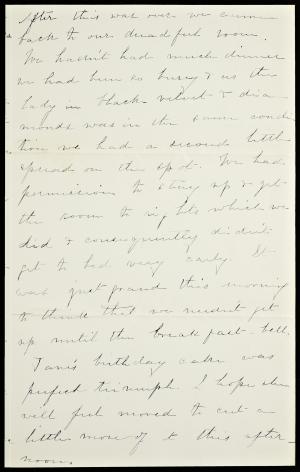 After this was over we came
back to our dreadful room.
We hadn't had much dinner
we had been so busy & as the
lady in black velvet & dia-
monds was in the same condi-
tion we had a second little
spread on the spot. We had
permission to stay up & get
the room to rights which we
did & consequently didn't
get to bed very early. It
was just grand this morning
to think that we needn't get
up until the breakfast-bell.
Jane's birthday cake was
perfect triumph. I hope she
will feel moved to cut a
little more of it this after-
noon.